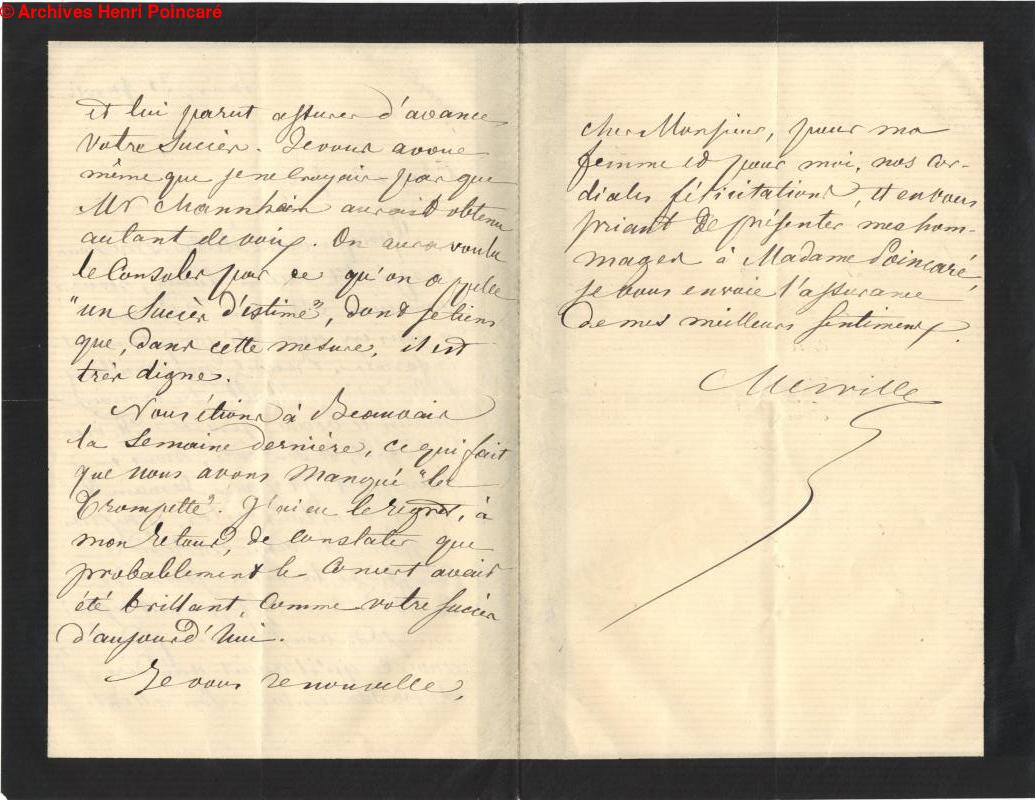 © Archives Henri Poincaré
et lui parut assurer d'avance
votre succès. Je vous avoue
même que je ne croyais pas que
Mr Mannheim aurait obtenu
autant de voix. On aura voulu
le consoler par ce qu'on appelle
"un succès d'estime", dont je tiens
que, dans cette mesure, il est
très digne.
Nous étions à Beauvais
la semaine dernière, ce qui fait
que nous avons manqué "la
Trompette". J'ai eu le regret, à
mon retour, de constater que
probablement le concert avait
été brillant, comme votre succès
d'aujourd'hui.
Je vous renouvelle,
cher Monsieur, pour ma
femme et pour moi, nos cor-
diales félicitations, et en vous
priant de présenter mes hom-
mages à Madame Poincaré,
je vous envoie l'assurance
de mes meilleurs sentiments.